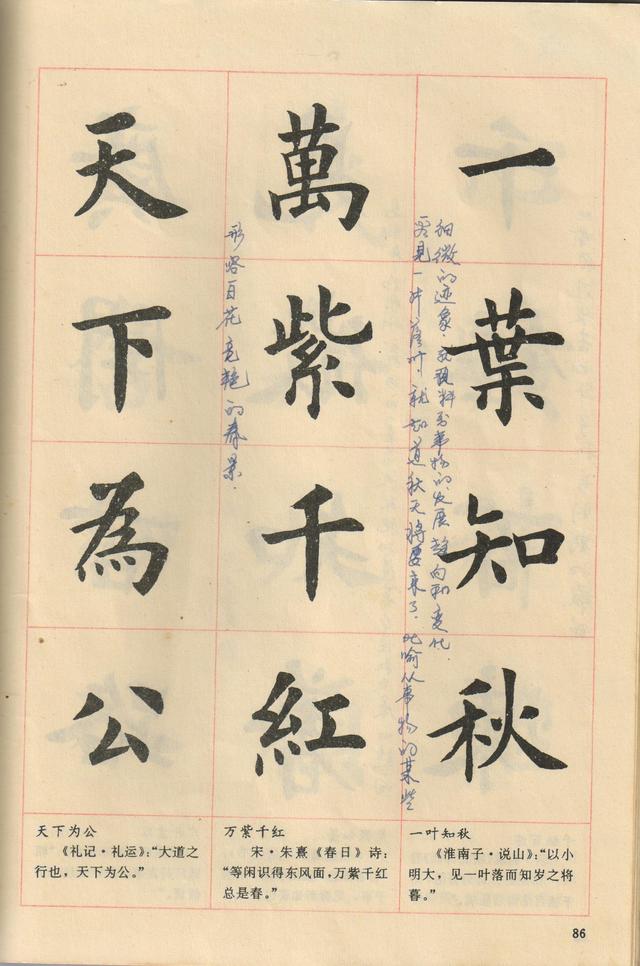 一葉知秋
看见一片落叶，就知道秋天将要来了．比喻从事物的某些
细微的迹象，可预料到事物的发展趋向和变化．
萬紫千紅
形容百花竞艳的春景．
天下為公
天下为公
《礼记·礼运》：“大道之
行也，天下为公。”
万紫千红
宋·朱熹《春日》诗：
“等闲识得东风面，万紫千红
总是春。”
一叶知秋
《淮南子·说山》：“以小
明大，见一叶落而知岁之将
暮。”
86